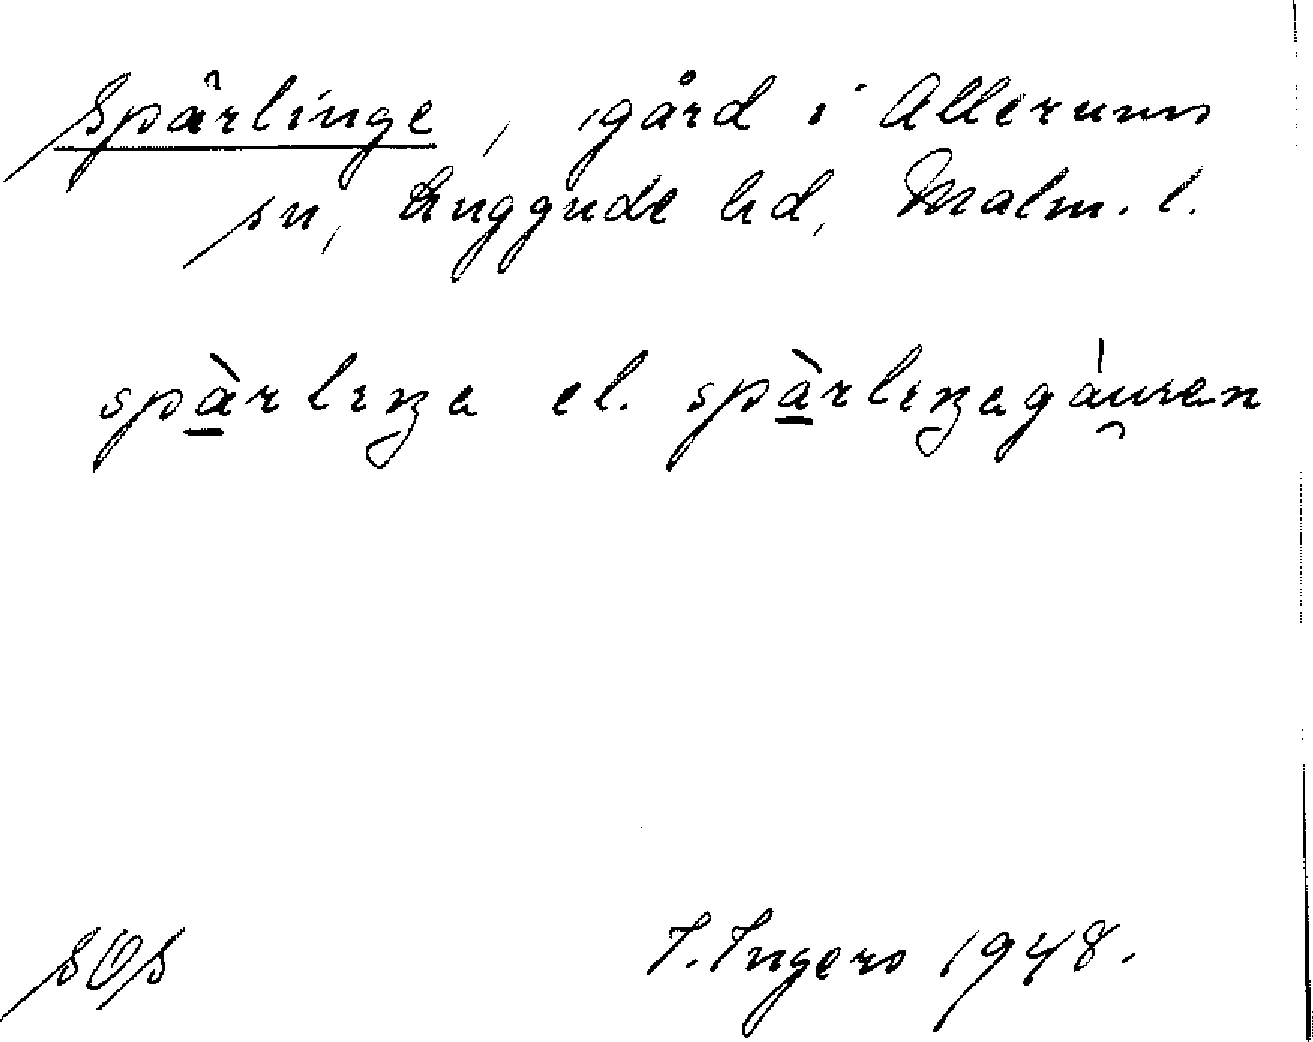 Spärlinge, gård i Allerums
sn, Luggude hd, Malm. l.
spàrlɩŋa el. spàrlɩŋagǻu̯ran
SOS
I. Ingers 1948.